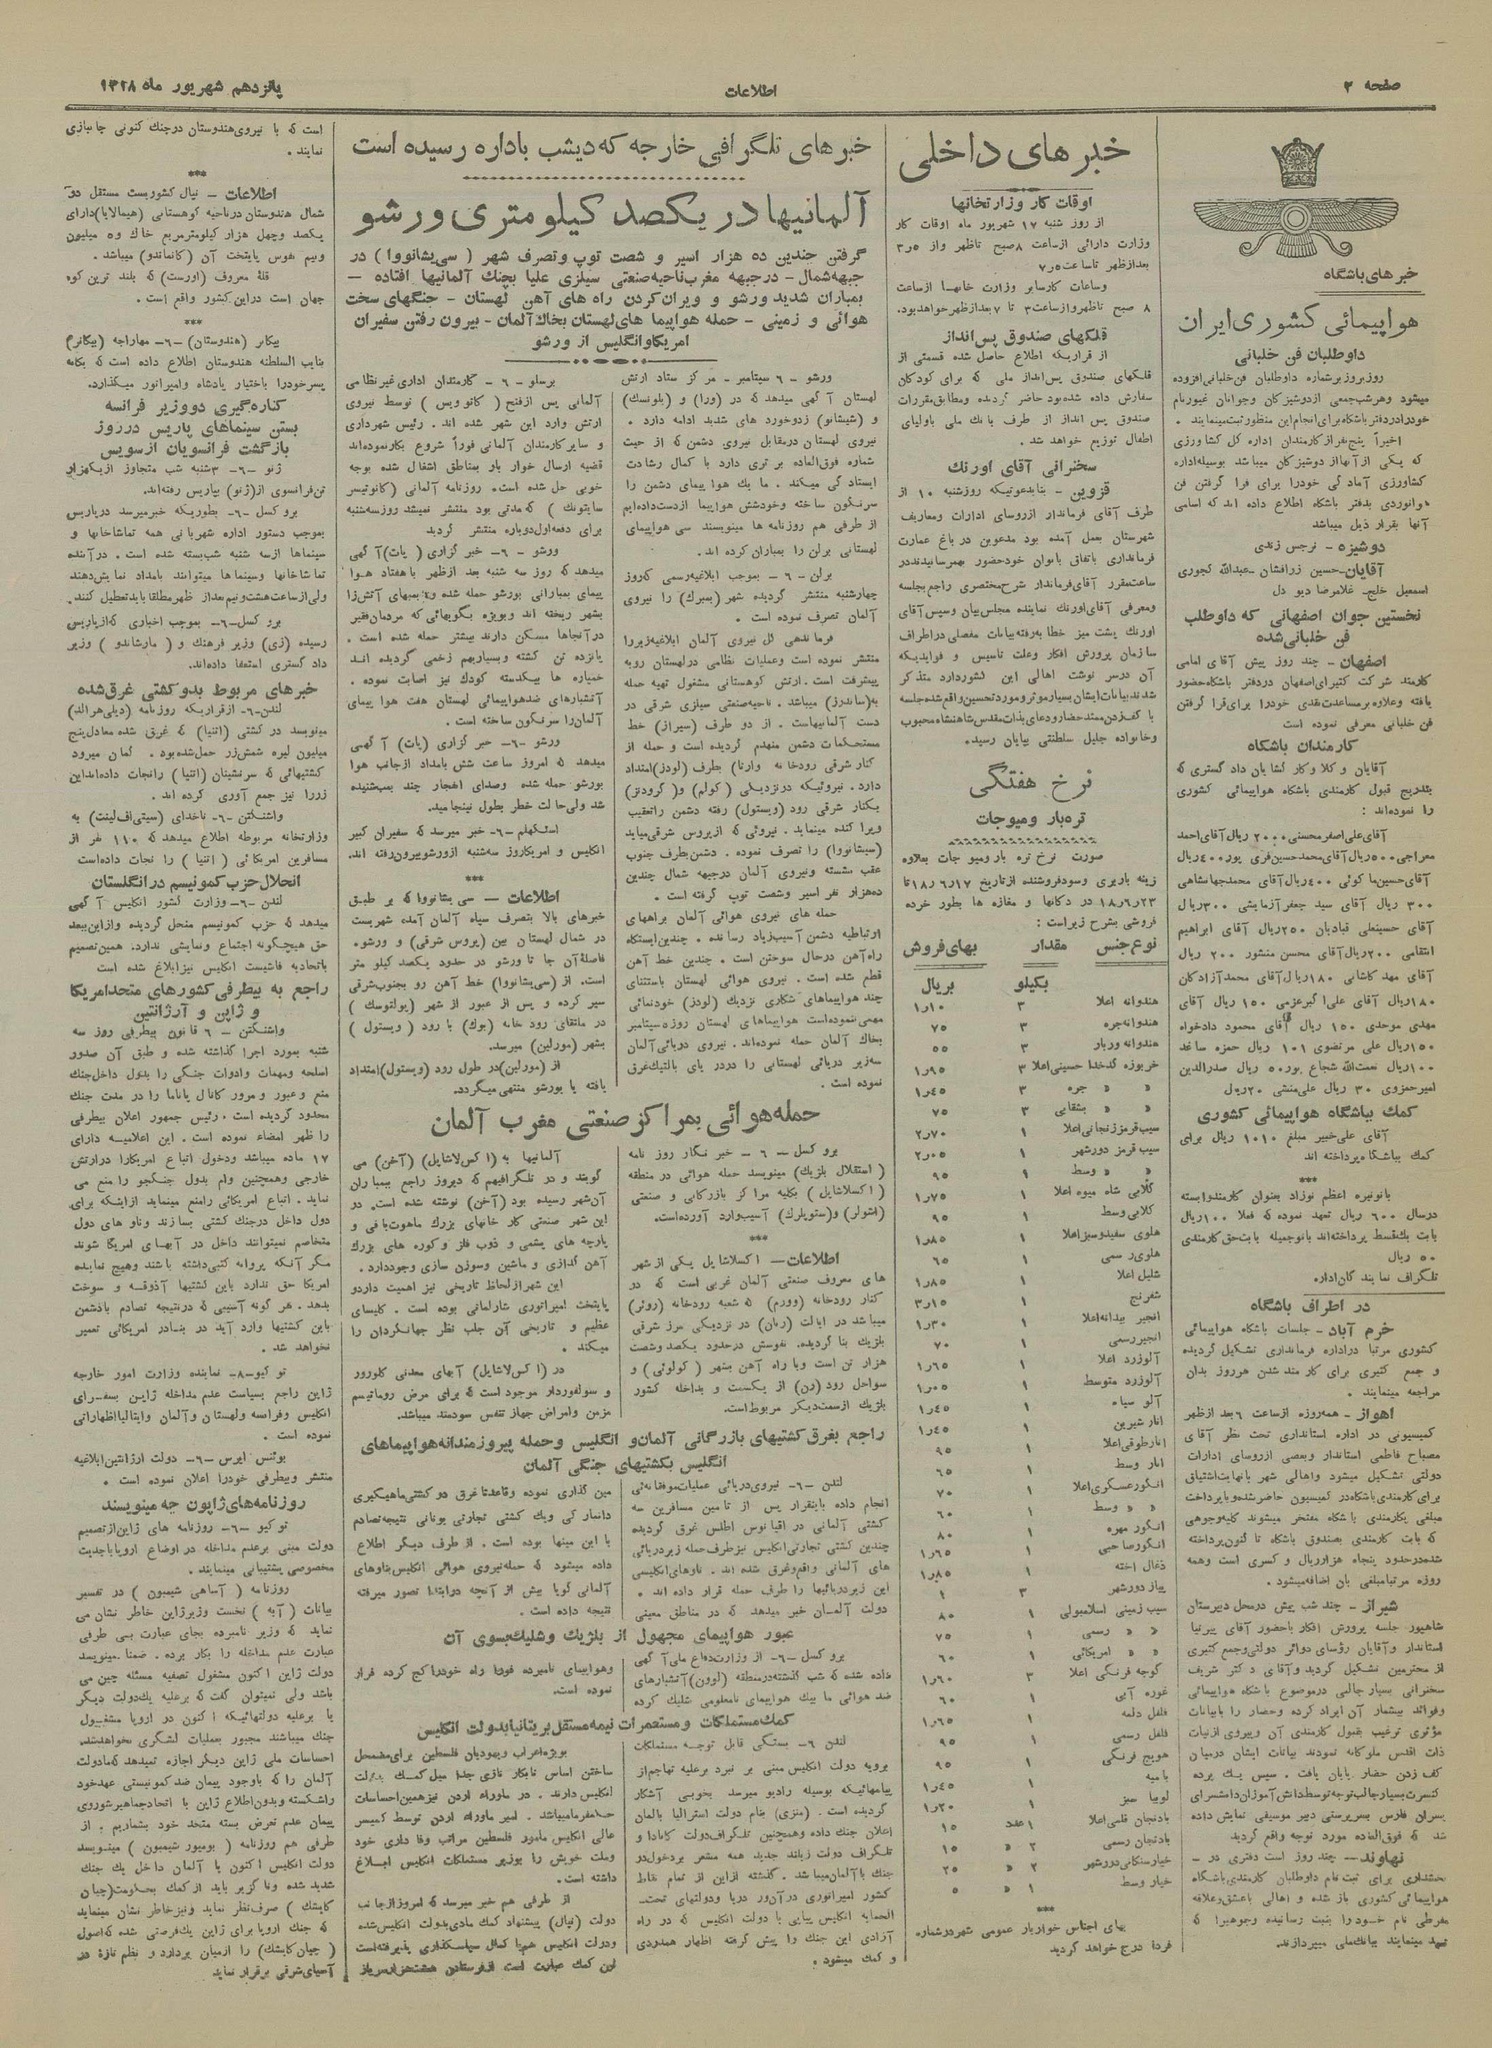 صفحه ۲
اطلاعات
پانزدهم شهریور ماه ۱۳۱۸
خبرهای باشگاه
هواپیمائی کشوری ایران
داوطلبان فن خلبانی
روزبروز برشماره داوطلبان فن خلبانی افزوده
میشود وهرشب جمعی ازدوشیزگان وجوانان غیور نام
خودرا در دفتر باشگاه برای انجام این منظور ثبت مینمایند .
اخیراً پنج نفر از کارمندان اداره کل کشاورزی
که یکی از آنها از دوشیزگان میباشد بوسیله اداره
کشاورزی آمادگی خودرا برای فرا گرفتن فن
هوانوردی بدفتر باشگاه اطلاع داده اند که اسامی
آنها بقرار ذیل میباشد
دوشیزه - نرجس زندی
آقایان - حسین زرافشان - عبدالله کجوری
اسمعیل خلج - غلامرضا دیو دل
نخستین جوان اصفهانی که داوطلب
فن خلبانی شده
اصفهان - چند روز پیش آقای امامی
کارمند شرکت کتیرای اصفهان دردفتر باشگاه حضور
یافته وعلاوه بر مساعدت نقدی خودرا برای فرا گرفتن
فن خلبانی معرفی نموده است
کارمندان باشگاه
آقایان و کلا و کار گشایان داد گستری که
بتدریج قبول کارمندی باشگاه هواپیمائی کشوری
را نموده‌اند :
آقای علی اصغر محسنی ۲۰۰۰ ریال آقای احمد
معراجی ۵۰۰ ریال آقای محمد حسین فری پور ۴۰۰ ریال
آقای حسین ما کوئی ۴۰۰ ریال آقای محمد جهانشاهی
۳۰۰ ریال آقای سید جعفر آزمایشی ۳۰۰ ریال
آقای حسینعلی قبادیان ۲۵۰ ریال آقای ابراهیم
انتقامی ۲۰۰ ریال آقای محسن منشور ۲۰۰ ریال
آقای مهد کاشانی ۱۸۰ ریال آقای محمد آزادگان
۱۸۰ ریال آقای علی اکبر عزمی ۱۵۰ ریال آقای
مهدی موحدی ۱۵۰ ریال آقای محمود دادخواه
۱۵۰ ریال علی مرتضوی ۱۰۱ ریال حمزه ساعد
۱۰۰ ریال نعمت‌الله شجاع پور ۵۰ ریال صدرالدین
امیرحمزوی ۳۰ ریال علی منشی ۲۰ ریال
کمك بباشگاه هواپیمائی کشوری
آقای علی خبیر مبلغ ۱۰۱۰ ریال برای
کمك بباشگاه پرداخته اند
***
بانو نیره اعظم نوزاد بعنوان کارمند وابسته
درسال ۶۰۰ ریال تعهد نموده که فعلا ۱۰۰ ریال
بابت یكقسط پرداخته‌اند بانو جمیله بابت حق کارمندی
۵۰ ریال
تلگراف نمایندگان اداره
در اطراف باشگاه
خرم آباد - جلسات باشگاه هواپیمائی
کشوری مرتبا در اداره فرمانداری تشکیل گردیده
و جمع کثیری برای کارمند شدن هر روز بدان
مراجعه مینمایند .
اهواز - همه روزه از ساعت ۶ بعد از ظهر
کمیسیونی در اداره استانداری تحت نظر آقای
مصباح فاطمی استاندار وبعضی از روسای ادارات
دولتی تشکیل میشود واهالی شهر بانهایت اشتیاق
برای کارمندی باشگاه در کمیسیون حاضر شده و با پرداخت
مبلغی بکارمندی باشگاه مفتخر میشوند کلیه وجوهی
که بابت کارمندی بصندوق باشگاه تا کنون پرداخته
شده درحدود پنجاه هزار ریال و کسری است وهمه
روزه مرتبا مبلغی بان اضافه میشود .
شیراز - چند شب پیش درمحل دبیرستان
شاهپور جلسه پرورش افکار باحضور آقای پیرنیا
استاندار وآقایان رؤسای دوائر دولتی وجمع کثیری
از محترمین تشکیل گردید وآقای دکتر شریف
سخنرانی بسیار جالبی درموضوع باشگاه هواپیمائی
وفوائد بیشمار آن ایراد کرده وحضار را بابیانات
مؤثری ترغیب بقبول کارمندی آن وپیروی از نیات
ذات اقدس ملوکانه نمودند بیانات ایشان درمیان
کف زدن حضار پایان یافت . سپس یك پرده
کنسرت بسیار جالب توجه توسط دانش آموزان دانشسرای
پسران فارس بسرپرستی دبیر موسیقی نمایش داده
شد که فوق‌العاده مورد توجه واقع گردید
نهاوند - چند روز است دفتری در
بخشداری برای ثبت نام داوطلبان کارمندی باشگاه
هواپیمائی کشوری باز شده و اهالی باعشق وعلاقه
مفرطی نام خود را بثبت رسانیده وجوهیرا که
تعهد مینمایند ببانك ملی میپردازند
خبرهای داخلی
اوقات کار وزارتخانها
از روز شنبه ۱۷ شهریور ماه اوقات کار
وزارت دارائی ازساعت ۸ صبح تاظهر واز ۳٫۵
بعدازظهر تاساعت ۷٫۵
وساعات کار سایر وزارت خانها ازساعت
۸ صبح تاظهر وازساعت ۳ تا ۷ بعدازظهر خواهدبود .
قلکهای صندوق پس‌انداز
از قراریکه اطلاع حاصل شده قسمتی از
قلکهای صندوق پس‌انداز ملی که برای کودکان
سفارش داده شده‌بود حاضر گردیده ومطابق مقررات
صندوق پس انداز از طرف بانك ملی باولیای
اطفال توزیع خواهد شد .
سخنرانی آقای اورنك
قزوین - بنابدعوتیکه روزشنبه ۱۰ از
طرف آقای فرماندار ازروسای ادارات ومعاریف
شهرستان بعمل آمده بود مدعوین در باغ عمارت
فرمانداری باتفاق بانوان خودحضور بهمرسانیدند در
ساعت مقرر آقای فرماندار شرح مختصری راجع بجلسه
ومعرفی آقای اورنك نماینده مجلس بیان وسپس آقای
اورنك پشت میز خطابه رفته بیانات مفصلی در اطراف
سازمان پرورش افکار وعلت تاسیس و فوایدیکه
آن درسر نوشت اهالی این کشور دارد متذکر
شدند بیانات ایشان بسیار موثر ومورد تحسین واقع شد جلسه
با کف زدن ممتد حضار ودعای بذات مقدس شاهنشاه محبوب
وخانواده جلیل سلطنتی بپایان رسید.
نرخ هفتگی
تره‌بار ومیوجات
صورت نرخ تره بار ومیو جات بعلاوه
زینه باربری وسود فروشنده از تاریخ ۱۸٫۶٫۱۷ تا
۱۸٫۶٫۲۳ در دکانها و مغازه ها بطور خرده
فروشی بشرح زیر است :
نوع جنس مقدار بهای فروش
بکیلو بریال
هندوانه اعلا ۳ ۱٫۱۰
هندوانه جره ۳ ۷۵
هندوانه وربار ۳ ۵۵
خربوزه کدخدا حسینی اعلا ۳ ۱٫۹۵
« « جره ۳ ۱٫۴۵
« « بشقابی ۳ ۷۵
سیب قرمز زنجانی اعلا ۱ ۲٫۷۰
سیب قرمز دورشهر ۱ ۲٫۰۵
« « وسط ۱ ۹۵
گلابی شاه میوه اعلا ۱ ۱٫۷۵
گلابی وسط ۱ ۹۵
هلوی سفید وسبز اعلا ۱ ۱٫۸۵
هلوی رسمی ۱ ۶۵
شلیل اعلا ۱ ۱٫۸۵
شفرنج ۱ ۳٫۱۵
انجیر بیدانه اعلا ۱ ۱٫۳۰
انجیر رسمی ۱ ۷۰
آلوزرد اعلا ۱ ۱٫۶۵
آلوزرد متوسط ۱ ۱٫۰۵
آلو سیاه ۱ ۱٫۴۵
انار شیرین ۱ ۱٫۴۵
انار طوقی اعلا ۱ ۹۵
انار وسط ۱ ۶۵
انگور عسکری اعلا ۱ ۷۰
« « وسط ۱ ۶۰
انگور مهره ۱ ۸۰
انگور صاحبی ۱ ۱٫۶۵
ذغال اخته ۱ ۱٫۸۵
پیاز دورشهر ۳ ۱
سیب زمینی اسلامبولی ۱ ۸۰
« « رسمی ۱ ۷۵
« « امریکائی ۱ ۶۰
گوجه فرنگی اعلا ۳ ۱٫۶۰
غوره آبی ۱ ۶۰
فلفل دلمه ۱ ۱٫۶۵
فلفل رسمی ۱ ۹۵
هویج فرنگی ۱ ۹۵
بامیه ۱ ۱٫۴۵
لوبیا سبز ۱ ۱٫۲۰
بادنجان قلمی اعلا ۱ عدد ۱۵
بادنجان رسمی ۲ « ۱۵
خیار سنکانی دورشهر ۲ « ۲۵
خیار وسط ۱ « ۵
***
بهای اجناس خواربار عمومی شهر درشماره
فردا درج خواهد گردید
خبرهای تلگرافی خارجه که دیشب باداره رسیده است
آلمانیها در یکصد کیلومتری ورشو
گرفتن چندین ده هزار اسیر و شصت توپ وتصرف شهر ( سی‌شانووا ) در
جبهه شمال - در جبهه مغرب ناحیه صنعتی سیلزی علیا بچنك آلمانیها افتاده -
بمباران شدید ورشو و ویران کردن راه های آهن لهستان - جنگهای سخت
هوائی و زمینی - حمله هواپیما های لهستان بخاك آلمان - بیرون رفتن سفیران
امریکا وانگلیس از ورشو
ورشو - ۶ سپتامبر - مرکز ستاد ارتش
لهستان آگهی میدهد که در (ورا) و (بلونسك)
و (شیشانو) زدوخورد های شدید ادامه دارد .
نیروی لهستان درمقابل نیروی دشمن که از حیث
شماره فوق‌العاده برتری دارد با کمال رشادت
ایستادگی میکند . ما یك هواپیمای دشمن را
سرنگون ساخته وخودشش هواپیما ازدست داده‌ایم
از طرفی هم روزنامه ها مینویسند سی هواپیمای
لهستانی برلن را بمباران کرده اند .
برلن - ۶ - بموجب ابلاغیه رسمی که روز
چهارشنبه منتشر گردیده شهر (بمبرك) را نیروی
آلمان تصرف نموده است .
فرماندهی کل نیروی آلمان ابلاغیه زیررا
منتشر نموده است وعملیات نظامی در لهستان رو به
پیشرفت است . ارتش کوهستانی مشغول تهیه حمله
به (ساندز) میباشد . ناحیه صنعتی سیلزی شرقی در
دست آلمانیهاست . از دو طرف (سیراز) خط
مستحکمات دشمن منهدم گردیده است و حمله از
کنار شرقی رودخانه وارتا) بطرف (لودز) امتداد
دارد . نیروئیکه درنزدیکی (کولم) و (گرودنز)
بکنار شرقی رود (ویستول) رفته دشمن راتعقیب
ویراکنده مینماید . نیروئی که ازپروس شرقی میاید
(سیشانووا) را تصرف نموده . دشمن بطرف جنوب
عقب نشسته ونیروی آلمان درجبهه شمال چندین
ده‌هزار نفر اسیر وشصت توپ گرفته است .
حمله های نیروی هوائی آلمان براههای
ارتباطیه دشمن آسیب زیاد رسانده . چندین ایستگاه
راه آهن درحال سوختن است . چندین خط آهن
قطع شده است . نیروی هوائی لهستان باستثنای
چند هواپیماهای شکاری نزدیك (لودز) خودنمائی
مهمی ننموده است هواپیماهای لهستان روز ۵ سپتامبر
بخاك آلمان حمله نموده‌اند . نیروی دریائی آلمان
سه زیر دریائی لهستانی را دردریای بالتیك غرق
نموده است .
برسلو - ۶ - گارمندان اداری غیرنظامی
آلمانی پس ازفتح ( کاتوویس ) توسط نیروی
ارتش وارد این شهر شده اند . رئیس شهرداری
و سایر کارمندان آلمانی فوراً شروع بکار نموده‌اند
قضیه ارسال خوار بار بمناطق اشغال شده بوجه
خوبی حل شده است . روزنامه آلمانی (کاتوتیسر
سایتونك ) که مدتی بود منتشر نمیشد روز سه‌شنبه
برای دفعه اول دوباره منتشر گردید
ورشو - ۶ - خبر گزاری ( پات) آگهی
میدهد که روز سه شنبه بعد ازظهر باهفتاد هوا
پیمای بمبارانی بورشو حمله شده و بمبهای آتش‌زا
بشهر ریخته اند وبویژه بکویهائی که مردمان فقیر
در آنجاها مسکن دارند بیشتر حمله شده است .
پانزده تن کشته وبسیاربهم زخمی گردیده اند
خمپاره ها بیکدسته کودك نیز اصابت نموده .
آتشبارهای ضدهواپیمائی لهستان هفت هوا پیمای
آلمان را سرنگون ساخته است .
ورشو - ۶ - خبر گزاری (پات) آگهی
میدهد که امروز ساعت شش بامداد ازجانب هوا
بورشو حمله شده وصدای انفجار چند بمب شنیده
شد ولی حالت خطر بطول نینجامید.
استکهلم - ۶ - خبر میرسد که سفیران کبیر
انگلیس و امریکا روز سه‌شنبه از ورشو بیرون رفته اند.
***
اطلاعات - سی‌یشانووا که بر طبق
خبرهای بالا بتصرف سپاه آلمان آمده شهریست
در شمال لهستان بین (پروس شرقی) و ورشو.
فاصله آن جا تا ورشو در حدود یکصد کیلو متر
است . از (سی‌یشانووا) خط آهن رو بجنوب شرقی
سیر کرده و پس از عبور از شهر (پولتوسك)
در ملتقای رود خانه (بوك) با رود ( ویستول )
بشهر (مورلین) میرسد.
از (مورلین) در طول رود (ویستول) امتداد
یافته تا بورشو منتهی میگردد.
حمله هوائی بمراکز صنعتی مغرب آلمان
بروکسل - ۶ - خبر نگار روز نامه
( استقلال بلژیك) مینویسد حمله هوائی در منطقه
( اکسلاشاپل ) بکلیه مراکز بازرگانی و صنعتی
(اشولر) و (ستوپلرك) آسیب وارد آورده است.
***
اطلاعات - اکسلاشاپل یکی از شهر
های معروف صنعتی آلمان غربی است که در
کنار رودخانه (وورم) که شعبه رودخانه (روئر)
میباشد در ایالت (رنان) در نزدیکی مرز شرقی
بلژیك بنا گردیده. نفوسش درحدود یکصد وشصت
هزار تن است وبا راه آهن بشهر ( کولونی ) و
سواحل رود (رن) از یکسو و بداخله کشور
بلژیك ازسمت دیگر مربوط است.
آلمانیها به (اکس‌لاشاپل) (آخن) می
گویند و در تلگرافیهم که دیروز راجع ببمباران
آن شهر رسیده بود (آخن) نوشته شده است . در
این شهر صنعتی کار خانهای بزرك ماهوت بافی و
پارچه های پشمی و ذوب فلز و کوره های بزرك
آهن گدازی و ماشین وسوزن سازی وجوددارد .
این شهر ازلحاظ تاریخی نیز اهمیت دارد و
پایتخت امپراتوری شارلمانی بوده است . کلیسای
عظیم و تاریخی آن جلب نظر جهانگردان را
میکند .
در (اکس‌لاشاپل) آبهای معدنی کلورور
و سولفوردار موجود است که برای مرض روماتیسم
مزمن وامراض جهاز تنفس سودمند میباشد.
راجع بغرق کشتیهای بازرگانی آلمان و انگلیس وحمله پیروزمندانه هواپیماهای
انگلیس بکشتیهای جنگی آلمان
لندن - ۶ - نیروی دریائی عملیات موفقانه‌ئی
انجام داده باینقرار پس از تامین مسافرین سه
کشتی آلمانی در اقیانوس اطلس غرق گردیده
چندین کشتی تجارتی انگلیس نیز طرف حمله زیردریائی
های آلمانی واقع وغرق شده اند . ناوهای انگلیسی
این زیردریائیها را طرف حمله قرار داده اند .
دولت آلمان خبر میدهد که در مناطق معینی
مین گذاری نموده وقاعدتا غرق دو کشتی ماهیگیری
دانمار کی ویك کشتی تجارتی یونانی نتیجه تصادم
با این مینها بوده است . از طرف دیگر اطلاع
داده میشود که حمله نیروی هوائی انگلیس بناوهای
آلمانی گویا بیش از آنچه در ابتدا تصور میرفته
نتیجه داده است .
عبور هواپیمای مجهول از بلژیك وشلیك بسوی آن
بروکسل - ۶ - از وزارت دفاع ملی آگهی
داده شده که شب گذشته درمنطقه (لوون) آتشبارهای
ضد هوائی ما بیك هواپیمای نامعلومی شلیك کرده
وهواپیمای نامبرده فورا راه خودراکج کرده فرار
نموده است.
کمك مستملکات و مستعمرات نیمه مستقل بریتانیا بدولت انگلیس
لندن - ۶ - بستگی قابل توجه مستملکات
برویه دولت انگلیس مبنی بر نبرد برعلیه تهاجم از
پیامهائیکه بوسیله رادیو میرسد بخوبی آشکار
گردیده است . (منزی) بنام دولت استرالیا بالمان
اعلان جنك داده وهمچنین تلگراف دولت کانادا و
تلگراف دولت زیلند جدید همه مشعر بردخول در
جنك با آلمان میباشد . گذشته ازاین از تمام نقاط
کشور امپراتوری در آن‌ور دریا ودولتهای تحت-
الحمایه انگلیس پیاپی با دولت انگلیس که در راه
آزادی این جنك را پیش گرفته اظهار همدردی
و کمك میشود .
بویژه اعراب ویهودیان فلسطین برای مضمحل
ساختن اساس نابکار نازی جدا میل کمك بدولت
انگلیس دارند . در ماوراء اردن نیزهمین احساسات
حکمفرما میباشد . امیر ماوراء اردن توسط کمیسر
عالی انگلیس مامور فلسطین مراتب وفا داری خود
وملت خویش را بوزیر مستملکات انگلیس ابلاغ
داشته است .
از طرفی هم خبر میرسد که امروز از جانب
دولت (نپال) پیشنهاد کمك مادی بدولت انگلیس شده
ودولت انگلیس هم با کمال سپاسگذاری پذیرفته است
این کمك عبارت است از فرستادن هشت هزار سرباز
است که با نیروی هندوستان درجنك کنونی جانبازی
نمایند .
***
اطلاعات - نپال کشوریست مستقل در
شمال هندوستان درناحیه کوهستانی (هیمالایا) دارای
یکصد وچهل هزار کیلومترمربع خاك و ۵ میلیون
ونیم نفوس پایتخت آن (کاتماندو) میباشد .
قله معروف (اورست) که بلند ترین کوه
جهان است در این کشور واقع است .
***
بیکانر (هندوستان) - ۶ - مهاراجه (بیکانر)
بنایب السلطنه هندوستان اطلاع داده است که یگانه
پسرخودرا باختیار پادشاه وامپراتور میگذارد.
کناره‌گیری دووزیر فرانسه
بستن سینماهای پاریس درروز
بازگشت فرانسویان ازسویس
ژنو - ۶ - ۳شنبه شب متجاوز ازیکهزار
تن فرانسوی از (ژنو) بپاریس رفته‌اند.
بروکسل - ۶ - بطوریکه خبر میرسد درپاریس
بموجب دستور اداره شهربانی همه تماشاخانها و
سینماها ازسه شنبه شب بسته شده است . در آینده
تماشاخانها وسینماها میتوانند بامداد نمایش دهند
ولی ازساعت هشت ونیم بعداز ظهر مطلقا باید تعطیل کنند.
بروکسل - ۶ - بموجب اخباری که از پاریس
رسیده (زی) وزیر فرهنك و ( مارشاندو ) وزیر
داد گستری استعفا داده‌اند.
خبرهای مربوط بدو کشتی غرق شده
لندن - ۶ - ازقراریکه روزنامه (دیلی هرالد)
مینویسد در کشتی (اتنیا) که غرق شده معادل پنج
میلیون لیره شمش زر حمل شده بود . گمان میرود
کشتیهائی که سرنشینان (اتنیا) رانجات داده‌اند این
زررا نیز جمع آوری کرده اند .
واشنگتن - ۶ - ناخدای (سیتی‌اف‌لینت) به
وزارتخانه مربوطه اطلاع میدهد که ۱۱۰ نفر از
مسافرین امریکائی ( اتنیا ) را نجات داده است
انحلال حزب کمونیسم در انگلستان
لندن - ۶ - وزارت کشور انگلیس آگهی
میدهد که حزب کمونیسم منحل گردیده و ازاین ببعد
حق هیچگونه اجتماع ونمایشی ندارد. همین تصمیم
باتحادیه فاشیست انگلیس نیزابلاغ شده است
راجع به بیطرفی کشورهای متحد امریکا
و ژاپن و آرژانتین
واشنگتن - ۶ قانون بیطرفی روز سه
شنبه بمورد اجرا گذاشته شده و طبق آن صدور
اسلحه ومهمات وادوات جنگی را بدول داخل جنك
منع وعبور و مرور کانال پاناما را در مدت جنك
محدود گردیده است . رئیس جمهور اعلان بیطرفی
را ظهر امضاء نموده است . این اعلامیه دارای
۱۷ ماده میباشد ودخول اتباع امریکارا درارتش
خارجی وهمچنین وام بدول جنگجو رامنع می
نماید . اتباع امریکائی رامنع مینماید ازاینکه برای
دول داخل درجنك کشتی بسازند وناو های دول
متخاصم نمیتوانند داخل در آبهای امریکا شوند
مگر آنکه پروانه کتبی داشته باشند وهیچ نماینده
امریکا حق ندارد باین کشتیها آذوقه و سوخت
بدهد . هر گونه آسیبی که درنتیجه تصادم بادشمن
باین کشتیها وارد آید در بنادر امریکائی تعمیر
نخواهد شد .
توکیو - ۸ - نماینده وزارت امور خارجه
ژاپن راجع بسیاست عدم مداخله ژاپن بسفرای
انگلیس وفرانسه ولهستان و آلمان وایتالیا اظهاراتی
نموده است .
بوئنس ایرس - ۶ - دولت ارژانتین ابلاغیه
منتشر وبیطرفی خودرا اعلان نموده است .
روزنامه‌های ژاپون چه مینویسند
توکیو - ۶ - روزنامه های ژاپن ازتصمیم
دولت مبنی برعدم مداخله در اوضاع اروپا باجدیت
مخصوصی پشتیبانی مینمایند .
روزنامه ( آساهی شیمبون ) در تفسیر
بیانات ( آبه ) نخست وزیر ژاپن خاطر نشان می
نماید که وزیر نامبرده بجای عبارت بی طرفی
عبارت عدم مداخله را بکار برده . ضمنا مینویسد
دولت ژاپن اکنون مشغول تصفیه مسئله چین می
باشد ولی نمیتوان گفت که برعلیه یك دولت دیگر
یا برعلیه دولتهائیکه اکنون در اروپا مشغول
جنك میباشند مجبور بعملیات لشگری نخواهدشد.
احساسات ملی ژاپن دیگر اجازه نمیدهد که مادولت
آلمان را که باوجود پیمان ضد کمونیستی عهدخود
راشکسته وبدون اطلاع ژاپن با اتحاد جماهیر شوروی
پیمان عدم تعرض بسته متحد خود بشماریم . از
طرفی هم روزنامه ( یومیور شیمبون ) مینویسد
دولت انگلیس اکنون با آلمان داخل یك جنك
شدید شده وناگزیر باید از کمك بحکومت (چیان
کایشك ) صرف نظر نماید ونیزخاطر نشان مینماید
که جنك اروپا برای ژاپن یك فرصتی شده که اصول
( چیان کایشك) را ازمیان بردارد و نظم تازه در
آسیای شرقی برقرار نماید